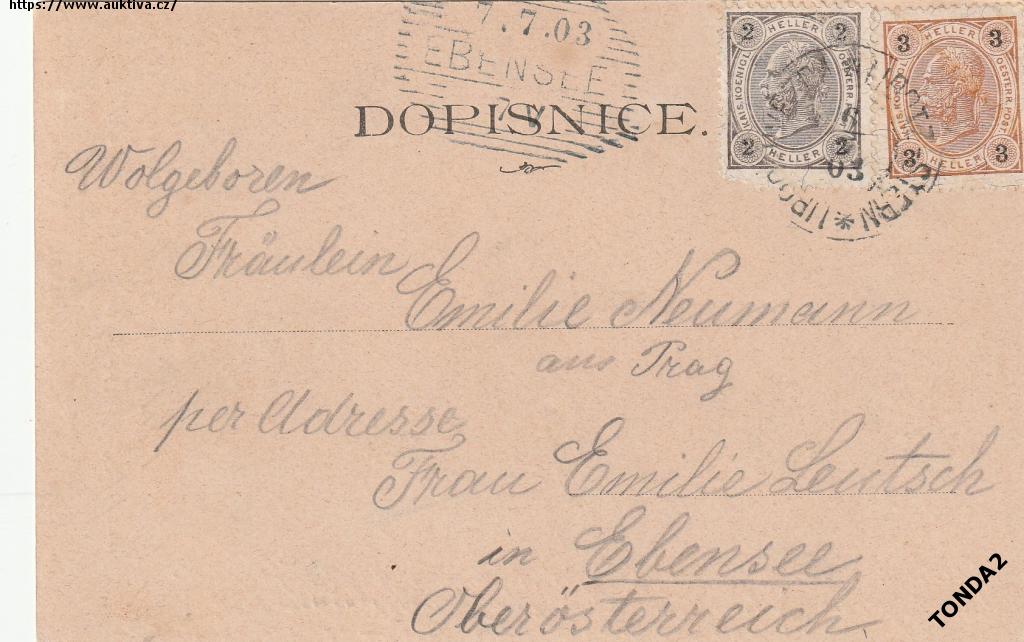 https://www.auktiva.cz/
7.7.03
EBENSEE
DOPISNICE.
2 HELLER 2
2 HELLER 2
KAIS. KOENIGL. OESTERR. POST
3 HELLER 3
3 HELLER 3
KAIS. KOENIGL. OESTERR. POST
6
03
Wolgeboren
Fräulein
Emilie Neumann
aus Prag
per Adresse
Frau Emilie Leutsch
in Ebensee
Oberösterreich
TONDA2